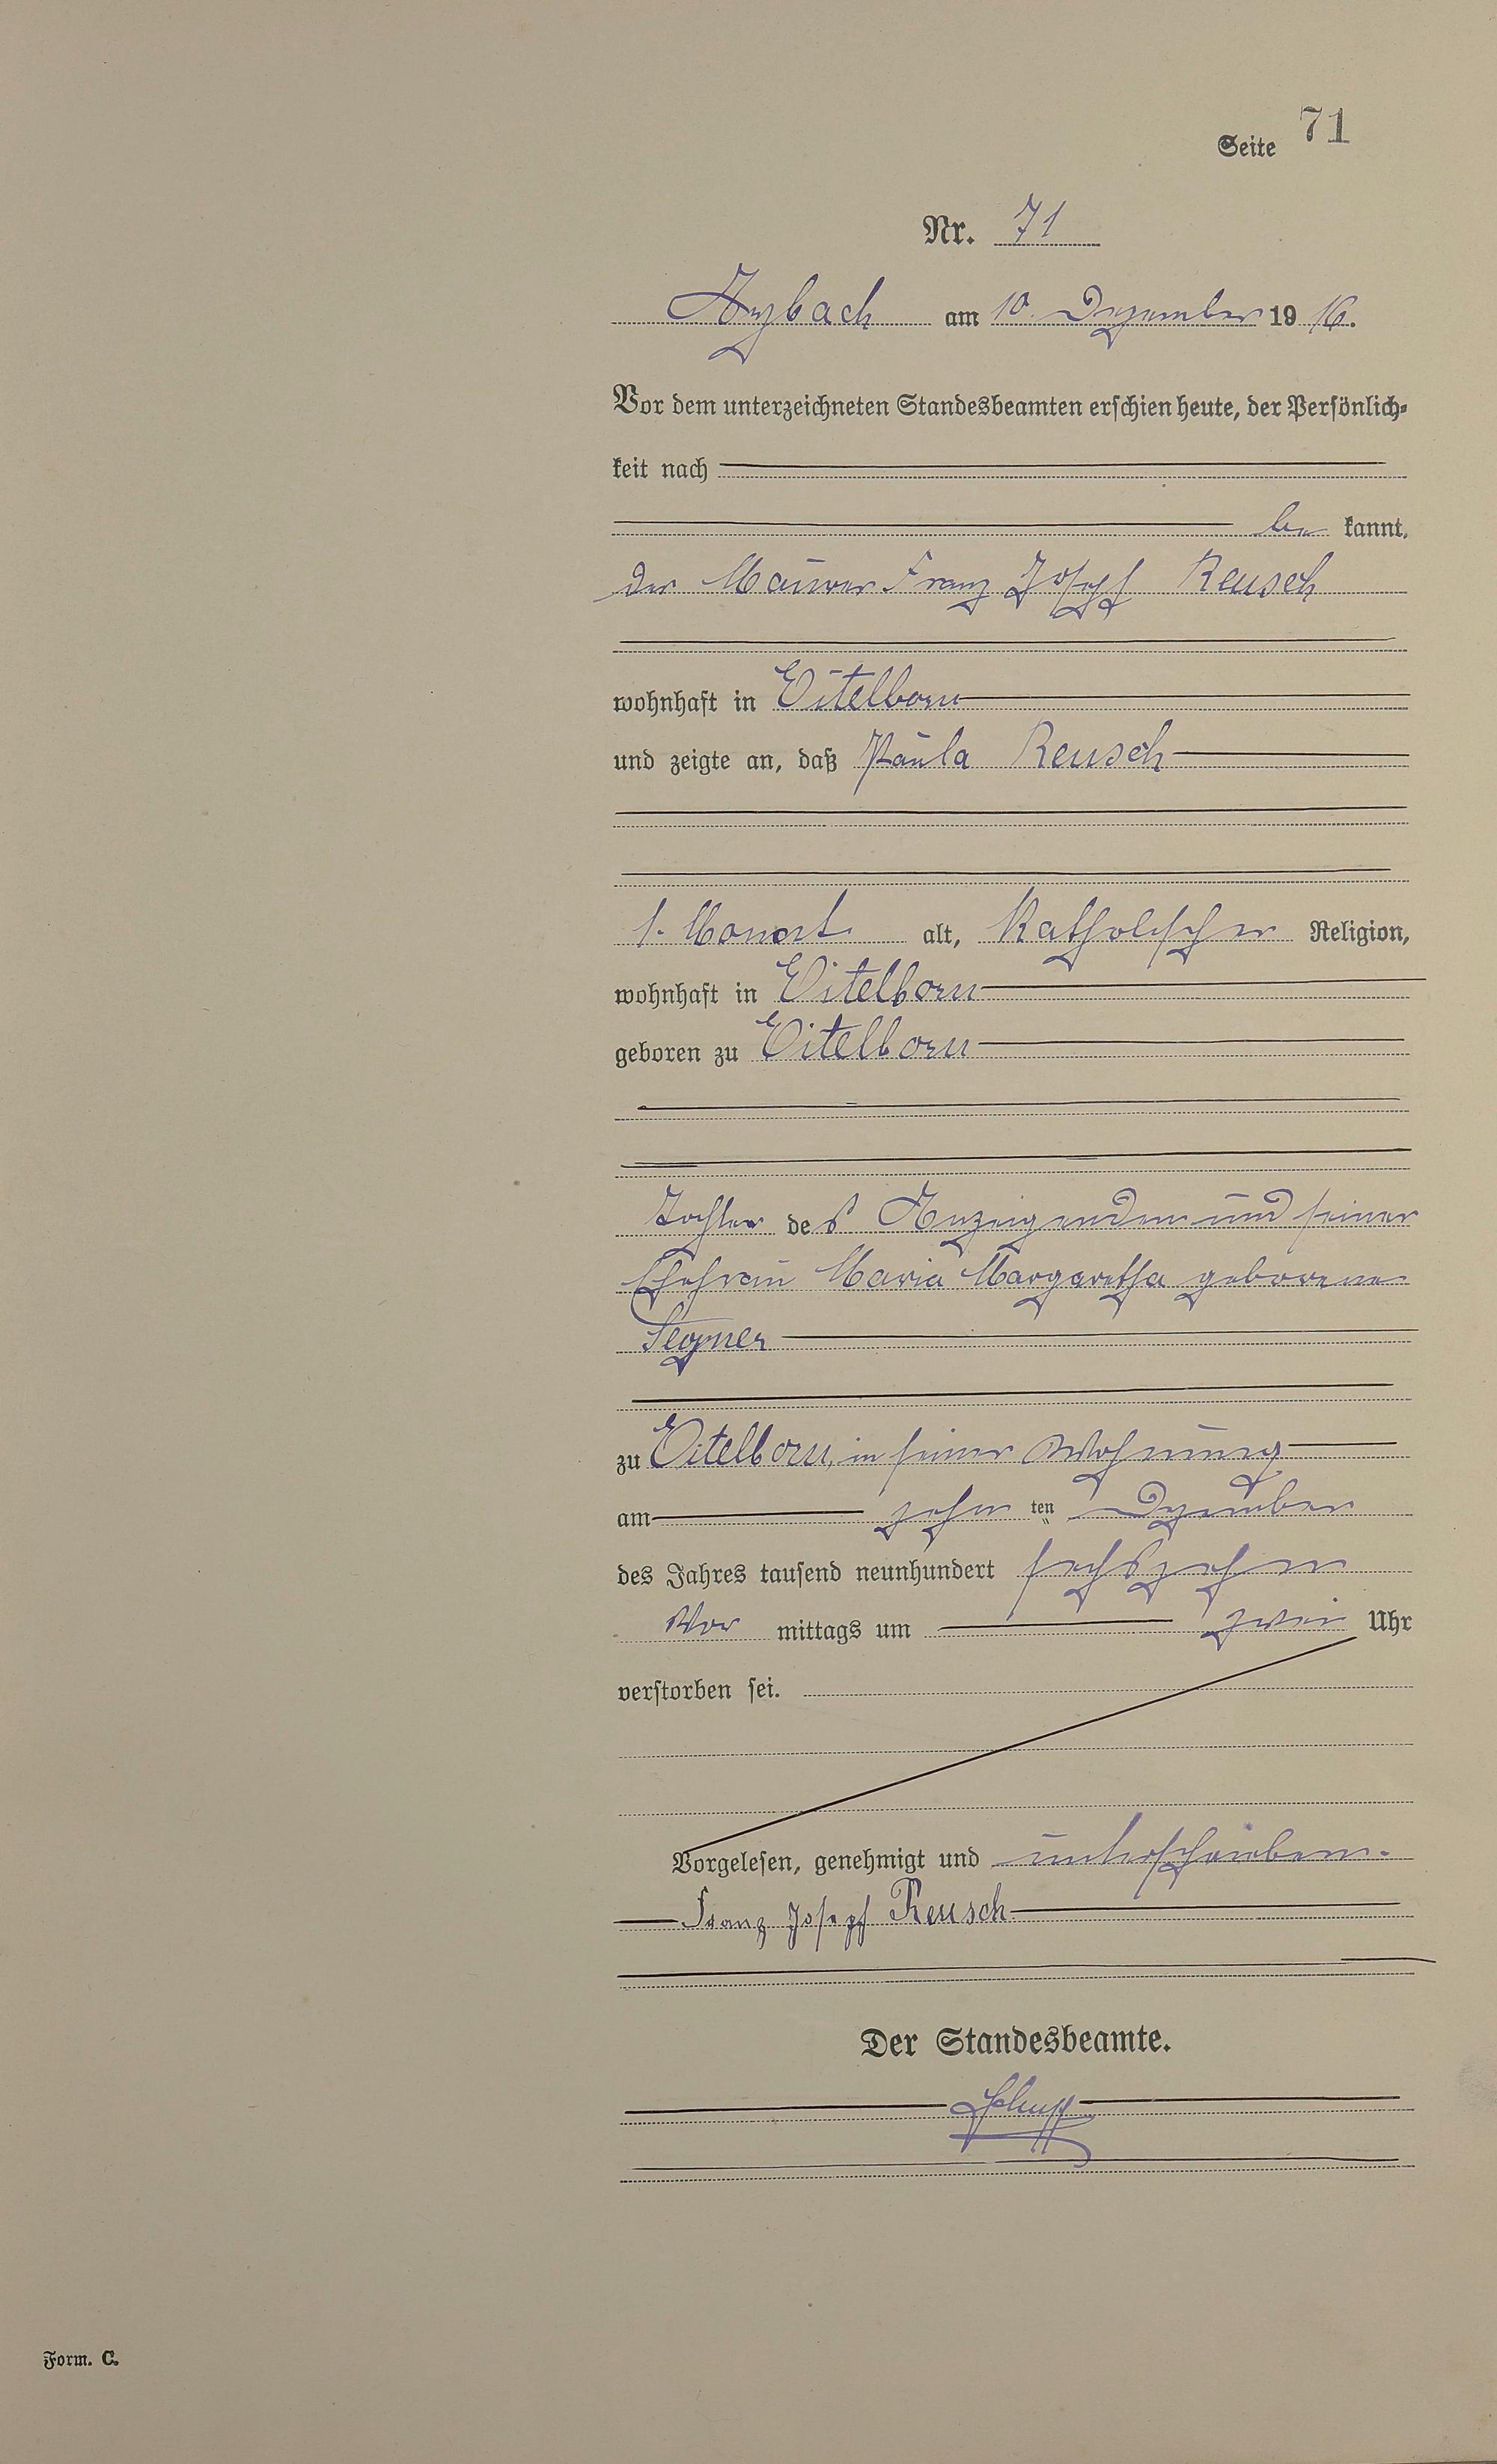 Seite 71
Nr. 71
Arzbach am 10. Dezember 1916.
Vor dem unterzeichneten Standesbeamten erschien heute, der Persönlich-
keit nach
be kannt,
der Maurer Franz Josef Reusch
wohnhaft in Eitelborn
und zeigte an, daß Paula Reusch
1. Monat alt, katholischer Religion,
wohnhaft in Eitelborn
geboren zu Eitelborn
Tochter des Anzeigenden und seiner
Ehefrau Maria Margaretha geborene
zu Eitelborn, in seiner Wohnung
am zehn ten Dezember
des Jahres tausend neunhundert sechszehn
Vor mittags um zwei Uhr
verstorben sei.
Vorgelesen, genehmigt und unterschrieben.
Franz Josepf Reusch
Der Standesbeamte.
Form. C.